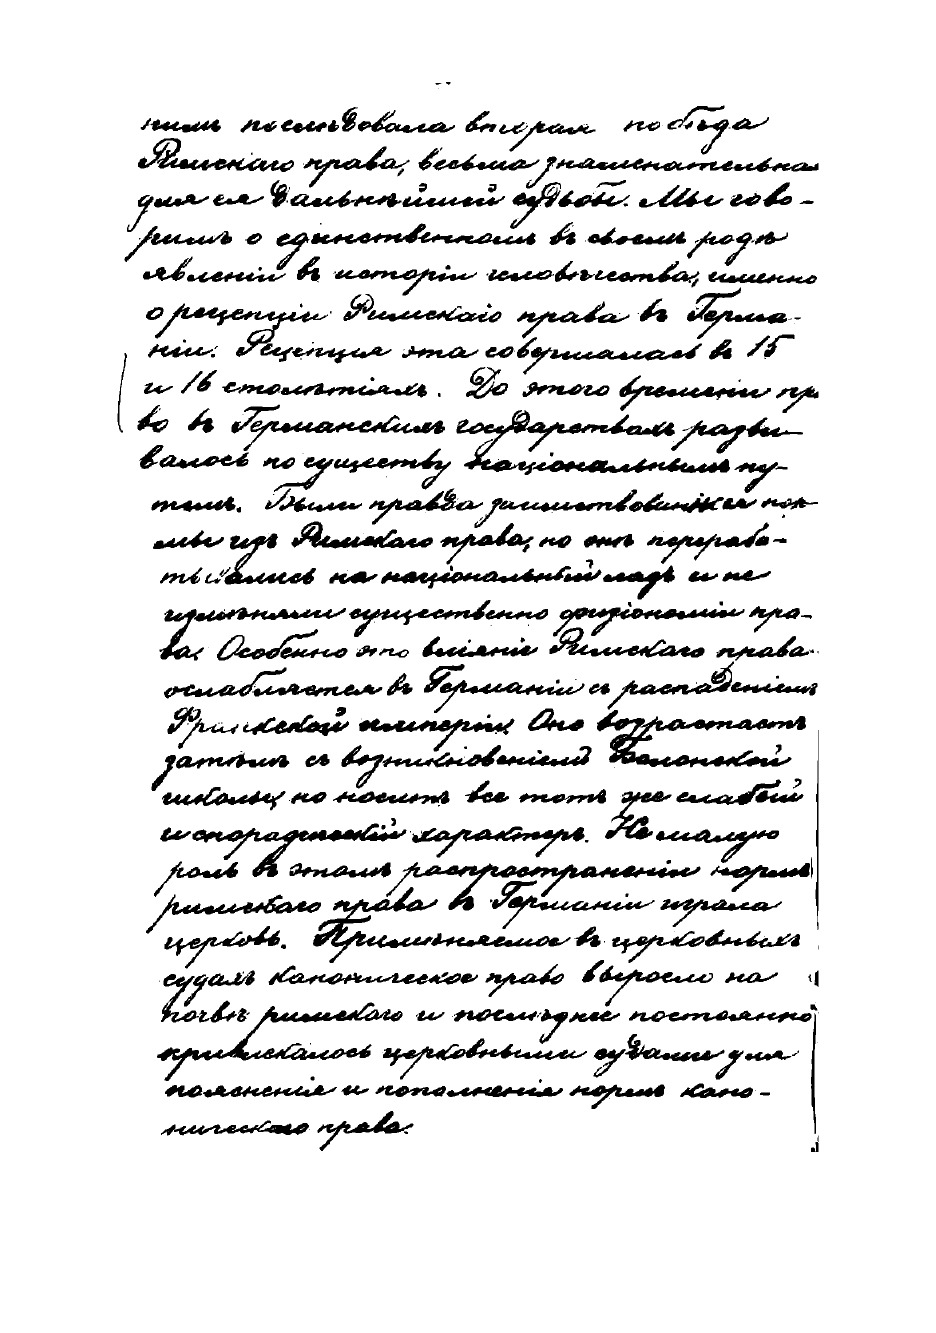 нимъ послѣдовала вторая побѣда
Римскаго права, весьма знаменательная
для ея дальнѣйшей судьбы. Мы гово-
римъ о единственномъ въ своемъ родѣ
явленіи въ исторіи человѣчества, именно
о рецепціи Римскаго права въ Герма-
ніи. Рецепція эта совершалась въ 15
и 16 столѣтіяхъ. До этого времени пра
во въ Германскихъ государствахъ разви-
валось по существу національнымъ пу-
темъ. Были правда заимствованія нор
мы изъ Римскаго права, но онѣ перерабо-
тывались на національный ладъ и не
измѣняли существенно физіономіи пра-
ва. Особенно это вліяніе Римскаго права
ослабляется въ Германіи съ распаденіемъ
Франкской имперіи. Оно возрастаетъ
затѣмъ съ возникновеніемъ Болонской
школы, но носитъ все тотъ же слабый
и спорадическій характеръ. Не малую
роль въ этомъ распространеніи нормъ
римскаго права въ Германіи играла
церковь. Примѣняемое въ церковныхъ
судахъ каноническое право выросло на
почвѣ римскаго и послѣднее постоянно
привлекалось церковными судами для
поясненія и пополненія нормъ кано-
ническаго права.